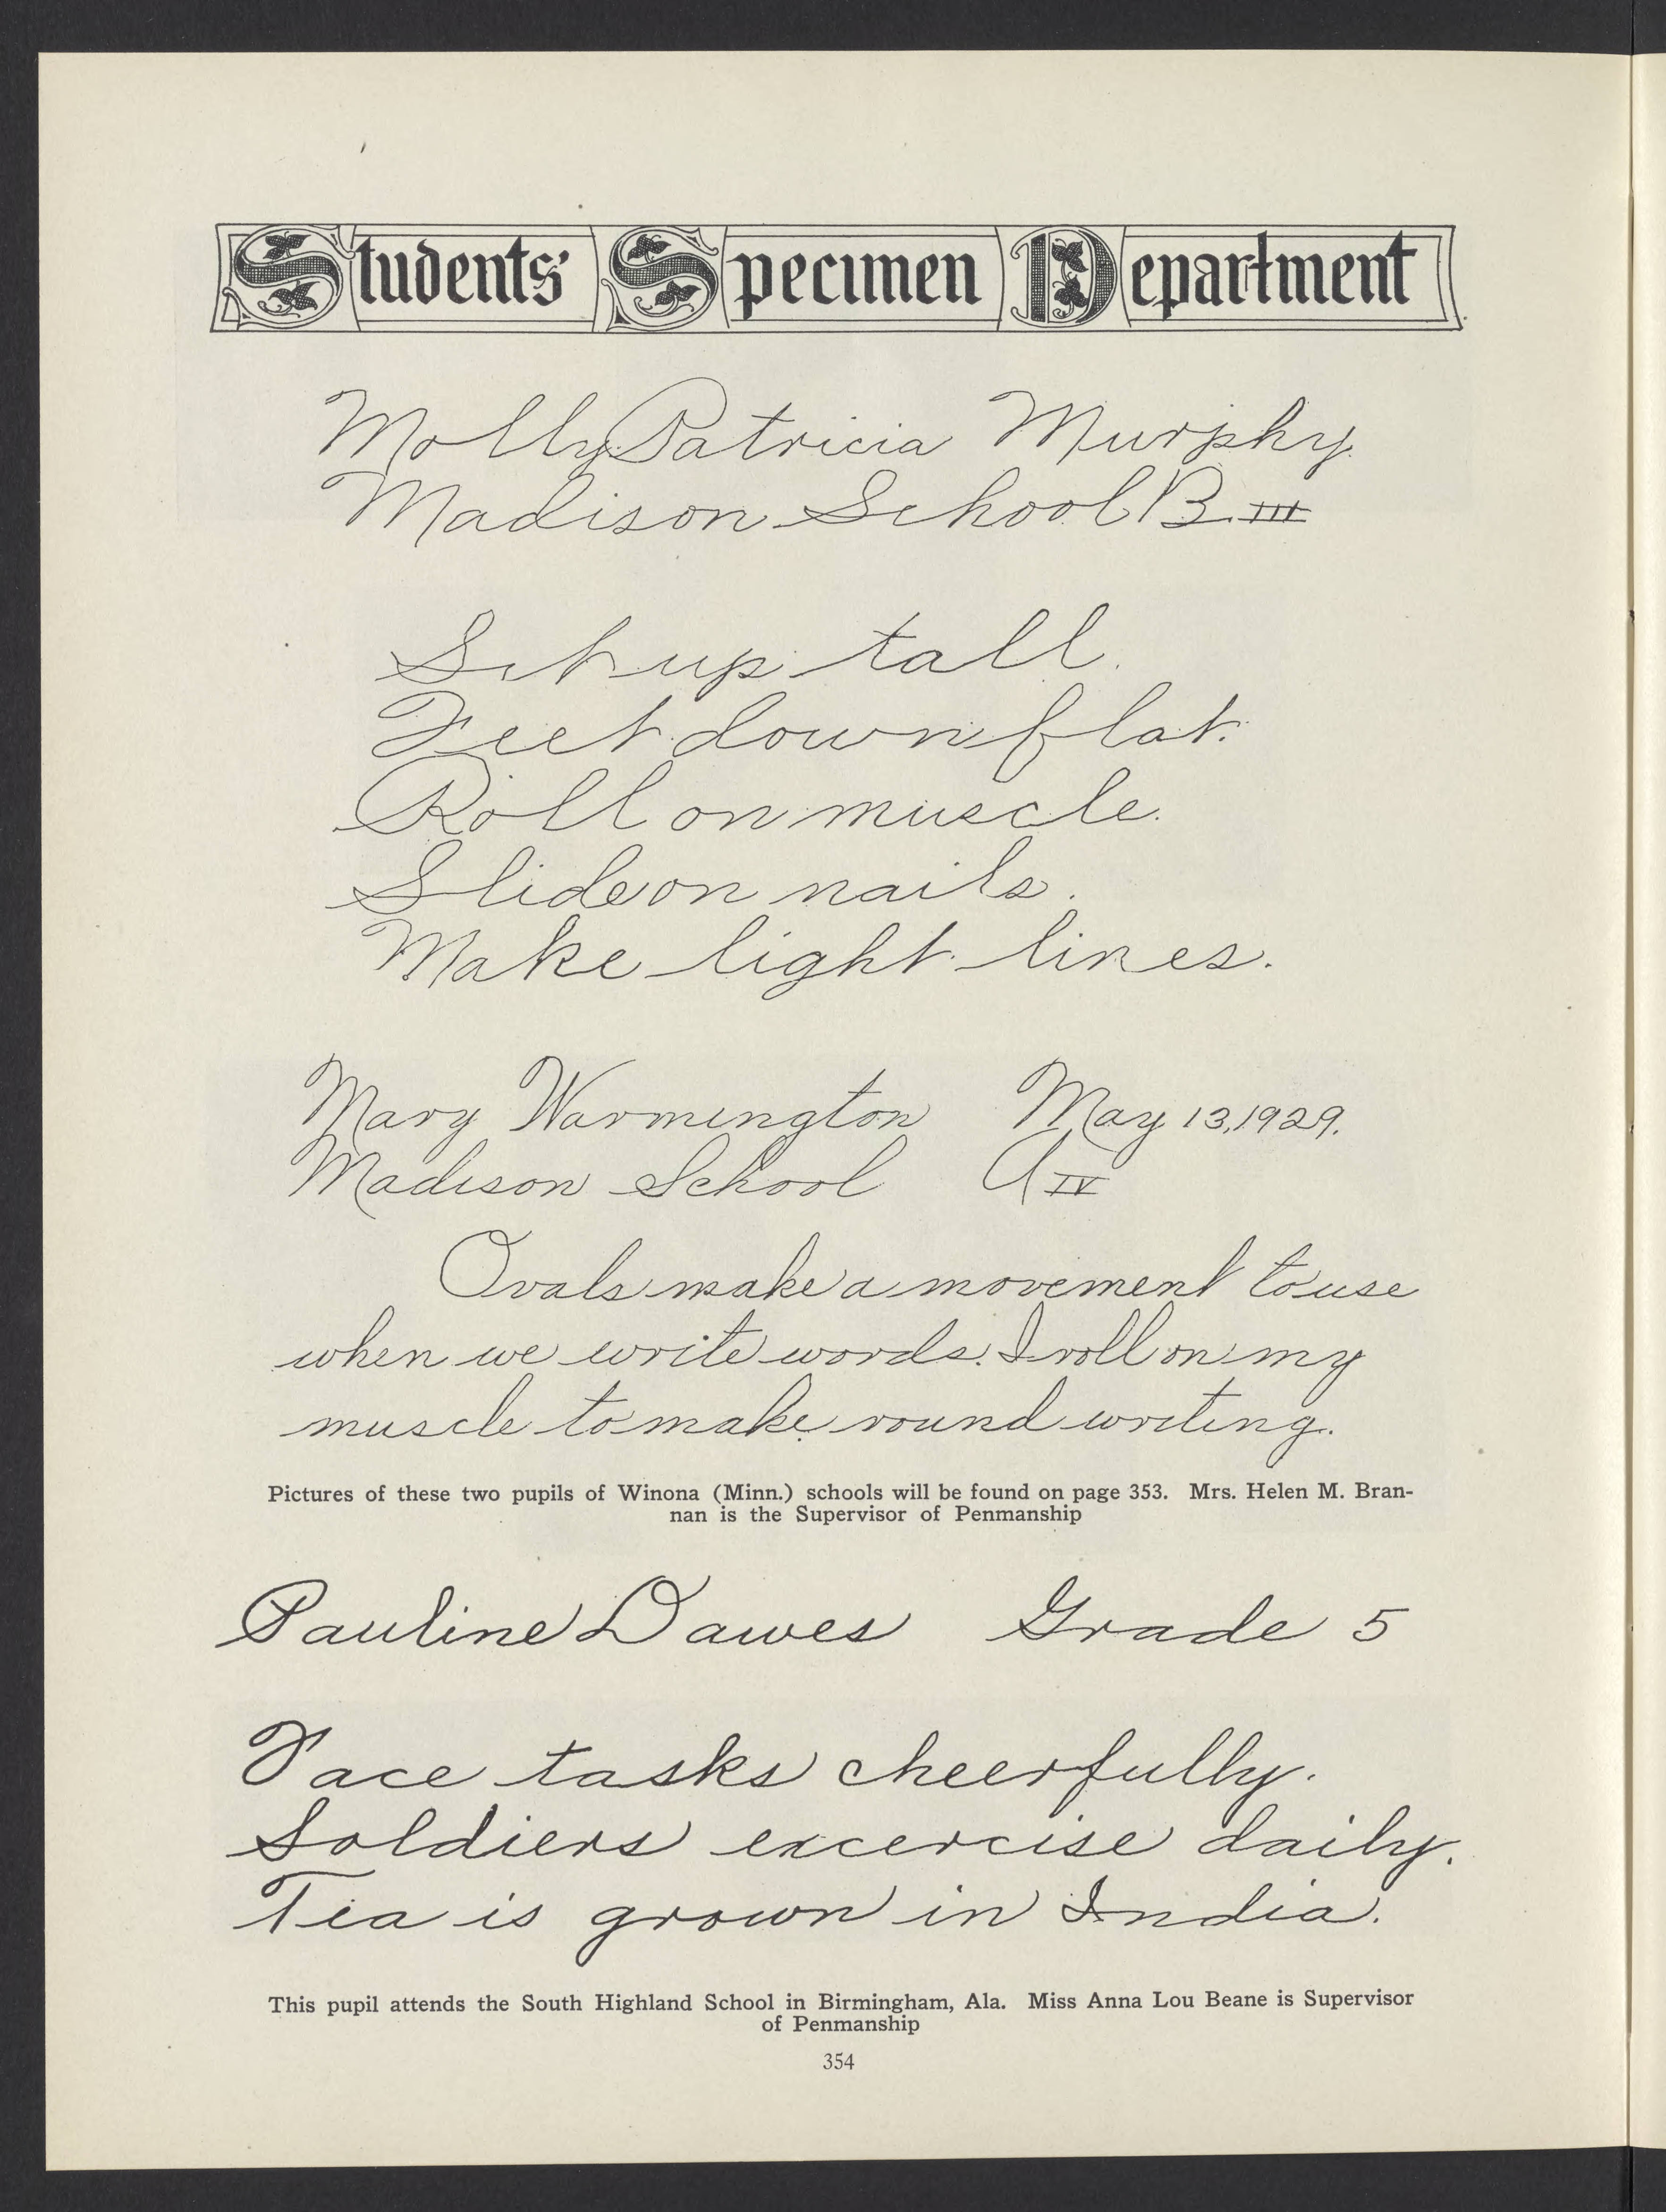 Students' Specimen Department
Molly Patricia Murphy.
Madison School B. III
Sit up tall.
Feet down flat.
Roll on muscle.
Slide on nails.
Make light lines.
Mary Warmington May 13, 1929.
Madison School A IV
Ovals make a movement to use
when we write words. I roll on my
muscle to make round writing.
Pictures of these two pupils of Winona (Minn.) schools will be found on page 353. Mrs. Helen M. Bran-
nan is the Supervisor of Penmanship
Pauline Dawes Grade 5
Face tasks cheerfully.
Soldiers excercise daily.
Tea is grown in India.
This pupil attends the South Highland School in Birmingham, Ala. Miss Anna Lou Beane is Supervisor
of Penmanship
354